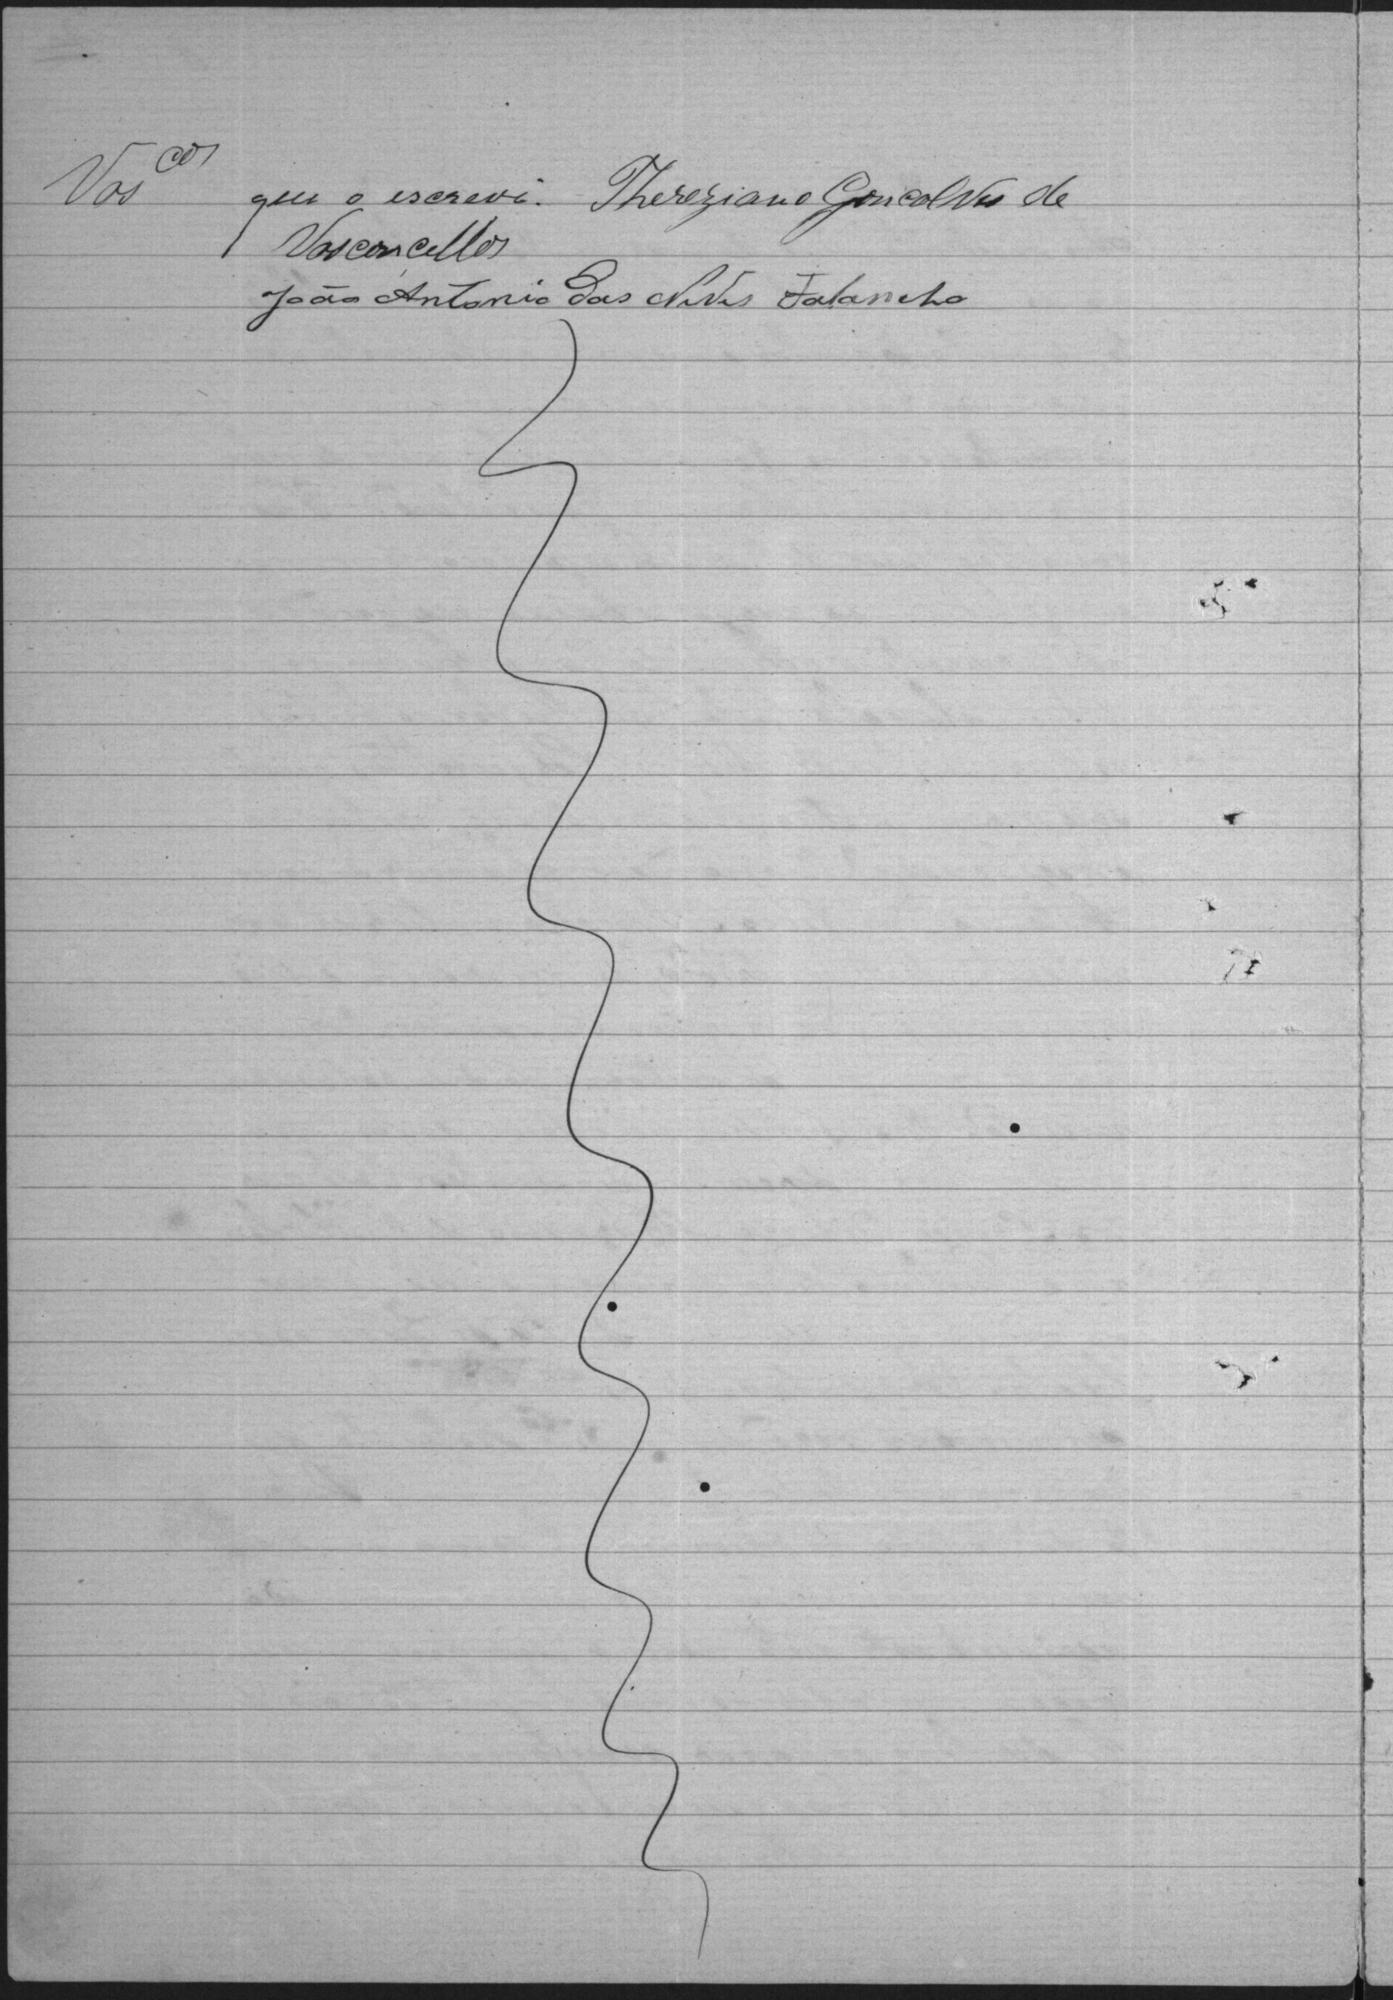 Vos cos
que o escrevi. Thereziano Goncalves de
Vasconcellos
João Antonio das Neves Falancho